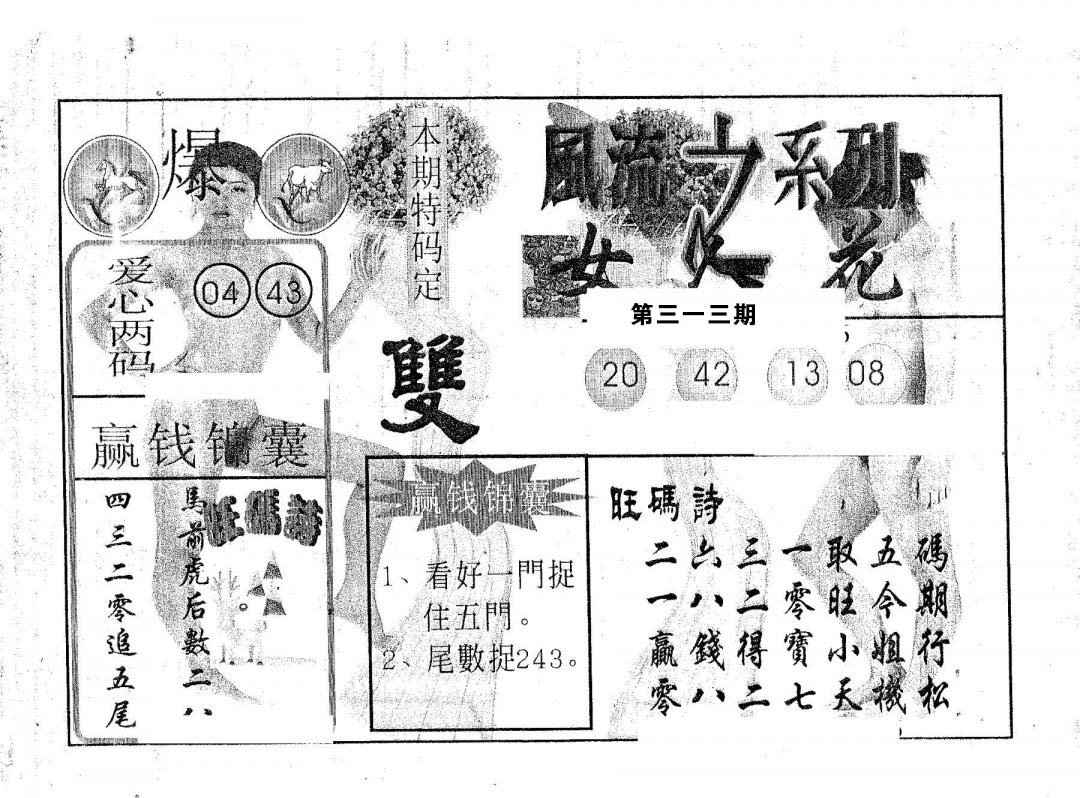 爆
爱心两码
04 43
赢钱锦囊
旺碼詩
馬前虎后數二八。
四三二零追五尾
本期特码定
雙
赢钱锦囊
1、看好一門捉
住五門。
2、尾數捉243。
風流之系列
女人花
第三一三期
20 42 13 08
旺碼詩
二六三一取五碼
一八二零旺今期
贏錢得寶小姐行
零八二七天機松